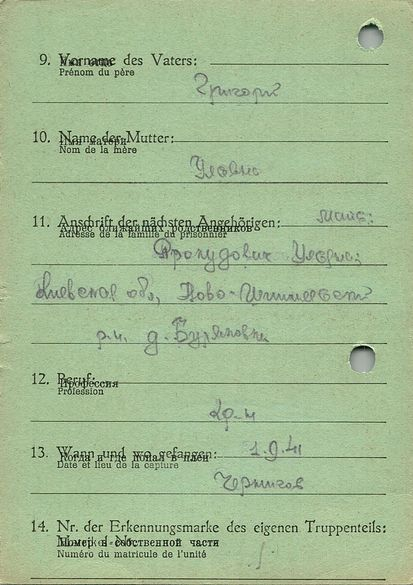 9. Vorname des Vaters:
Имя отца
Prénom du père
Григорий
10. Name der Mutter:
Имя матери
Nom de la mère
Ульяна
11. Anschrift der nächsten Angehörigen: мать:
Адрес ближайших родственников
Adresse de la famille du prisonnier
Ульяна;
Киевская обл, Ново-
р-н. д. Буряковка
12. Beruf:
Профессия
Profession
кр-н
13. Wann und wo gefangen: 1.9.41
Когда и где попал в плен
Date et lieu de la capture
Чернигов
14. Nr. der Erkennungsmarke des eigenen Truppenteils:
Номер в собственной части
Numéro du matricule de l'unité